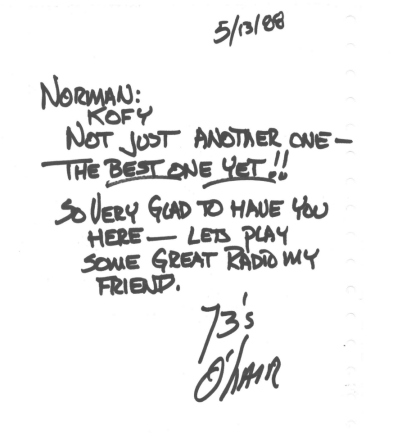 5/13/88
NORMAN:
KOFY
NOT JUST ANOTHER ONE—
THE BEST ONE YET!!
SO VERY GLAD TO HAVE YOU
HERE— LETS PLAY
SOME GREAT RADIO MY
FRIEND.
73's
O'HAIR